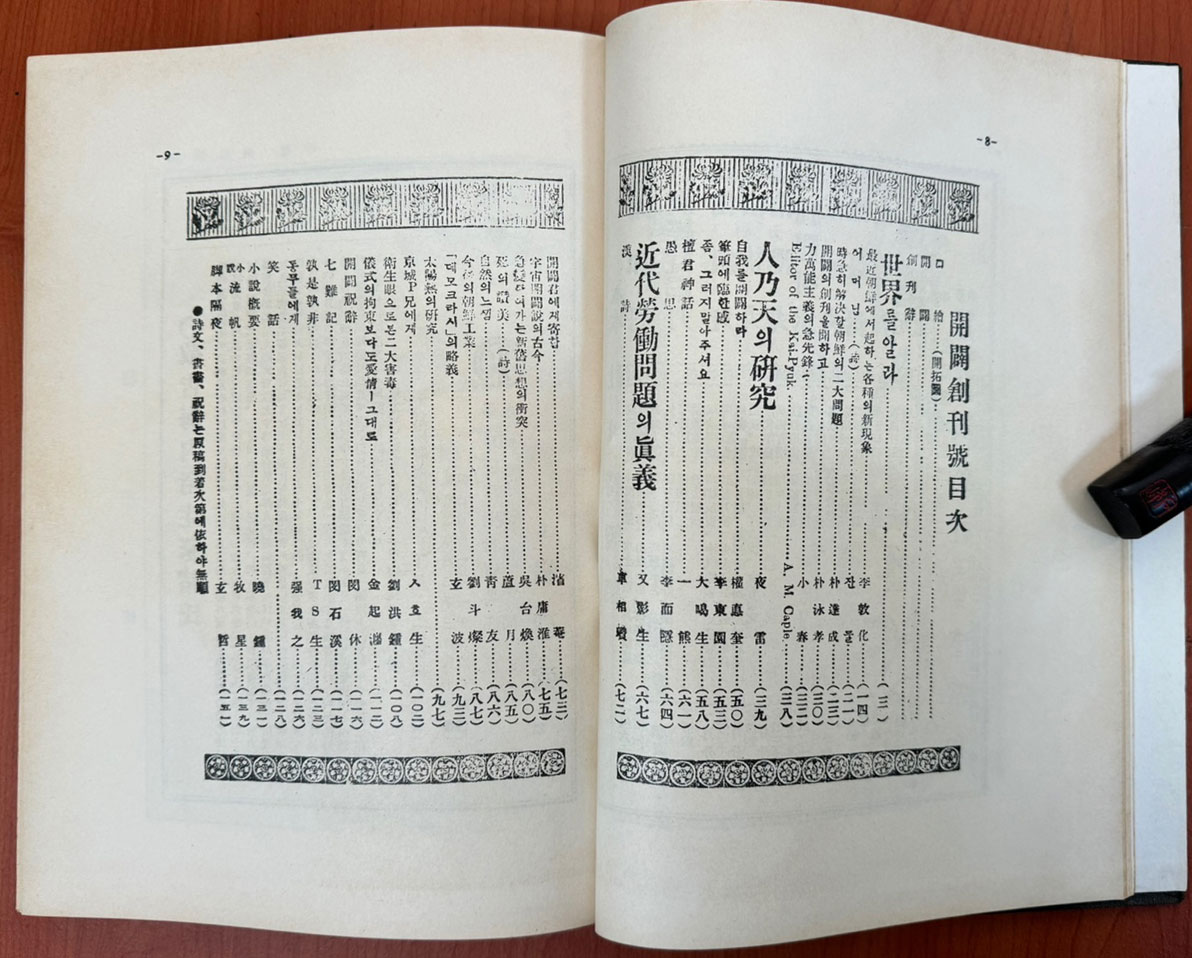 -8-
開闢創刊號目次
口繪(開拓圖)
創刊
開闢辭
世界를알라……(三)
最近朝鮮에서起하는各種의新現象……李敦化……(一四)
어머님(詩)……잔물……(二一)
時急히解決할朝鮮의二大問題……朴達成……(二三)
開闢의創刊을聞하고……朴泳孝……(三〇)
力萬能主義의急先鋒……小春……(三二)
Elitor of the Kai-Pyuk……A. M. Caple……(三八)
人乃天의硏究……夜雷……(三九)
自我를開闢하라……權悳奎……(五〇)
筆頭에臨한感……李東園……(五三)
좀、그러지말아주셔요……大喝生……(五八)
檀君神話……一熊……(六一)
愚思……李而
(六四)
近代勞働問題의眞義……又影生……(六七)
漢詩……車相瓚……(七二)
-9-
開闢君에게寄함……菴……(七三)
宇宙開闢說의古今……朴庸淮……(七五)
急變하여가는新舊思想의衝突……吳台煥……(八〇)
死의讚美(詩)……蘆月……(八五)
自然의느낌……靑友……(八六)
今後의朝鮮工業……劉斗燦……(八七)
「데모크라시」의略義……玄波……(九三)
太陽熱의硏究……(九七)
京城P兄에게……ㅅㅎ生……(一〇二)
衛生眼으로본二大害毒……劉洪鍾……(一〇八)
儀式의拘束보다도愛情ー그대로……金起瀍……(一一三)
開闢祝辭……閔休……(一一六)
七難記……閔石溪……(一一七)
孰是孰非……TS生……(一二三)
동무를에게……强我之……(一二六)
笑話……(一二八)
小說槪要……曉鍾……(一三一)
小說流帆……牧星……(一三九)
脚本隔夜……玄哲……(一五一)
●詩文、書畵、祝辭는原稿到着次第에依하야無順